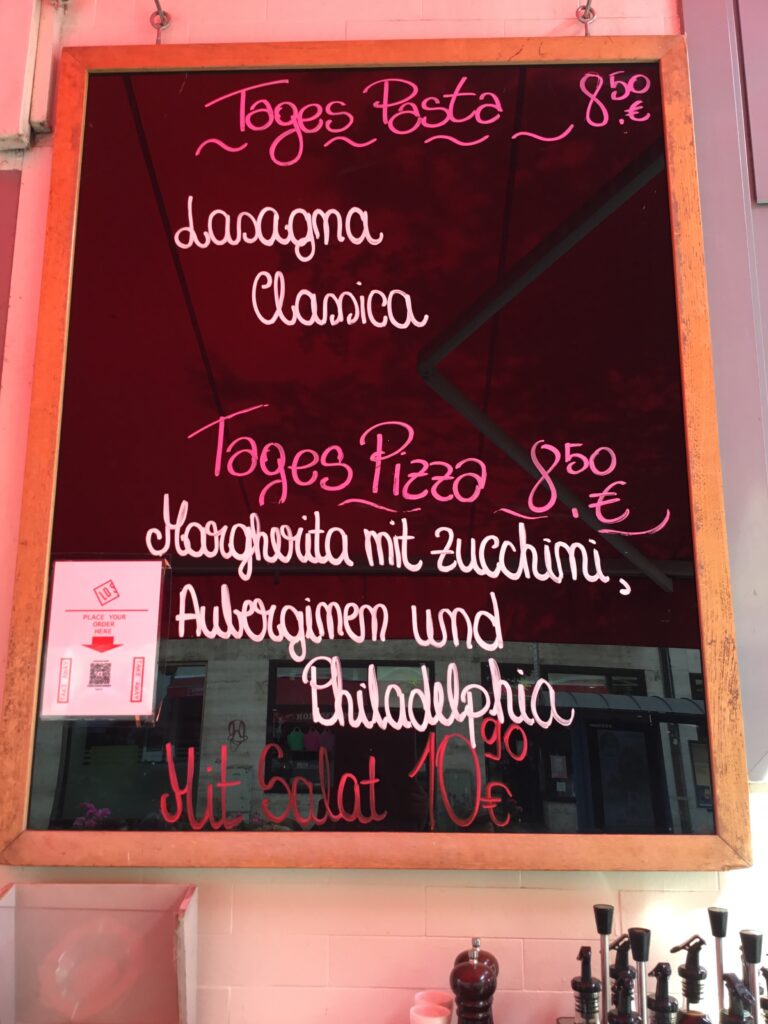 Tages Pasta 8.50 €
Lasagna
Classica
Tages Pizza 8.50 €
Margherita mit Zucchini,
Auberginen und
Philadelphia
PLACE YOUR
ORDER
HERE
Mit Salat 10.90 €